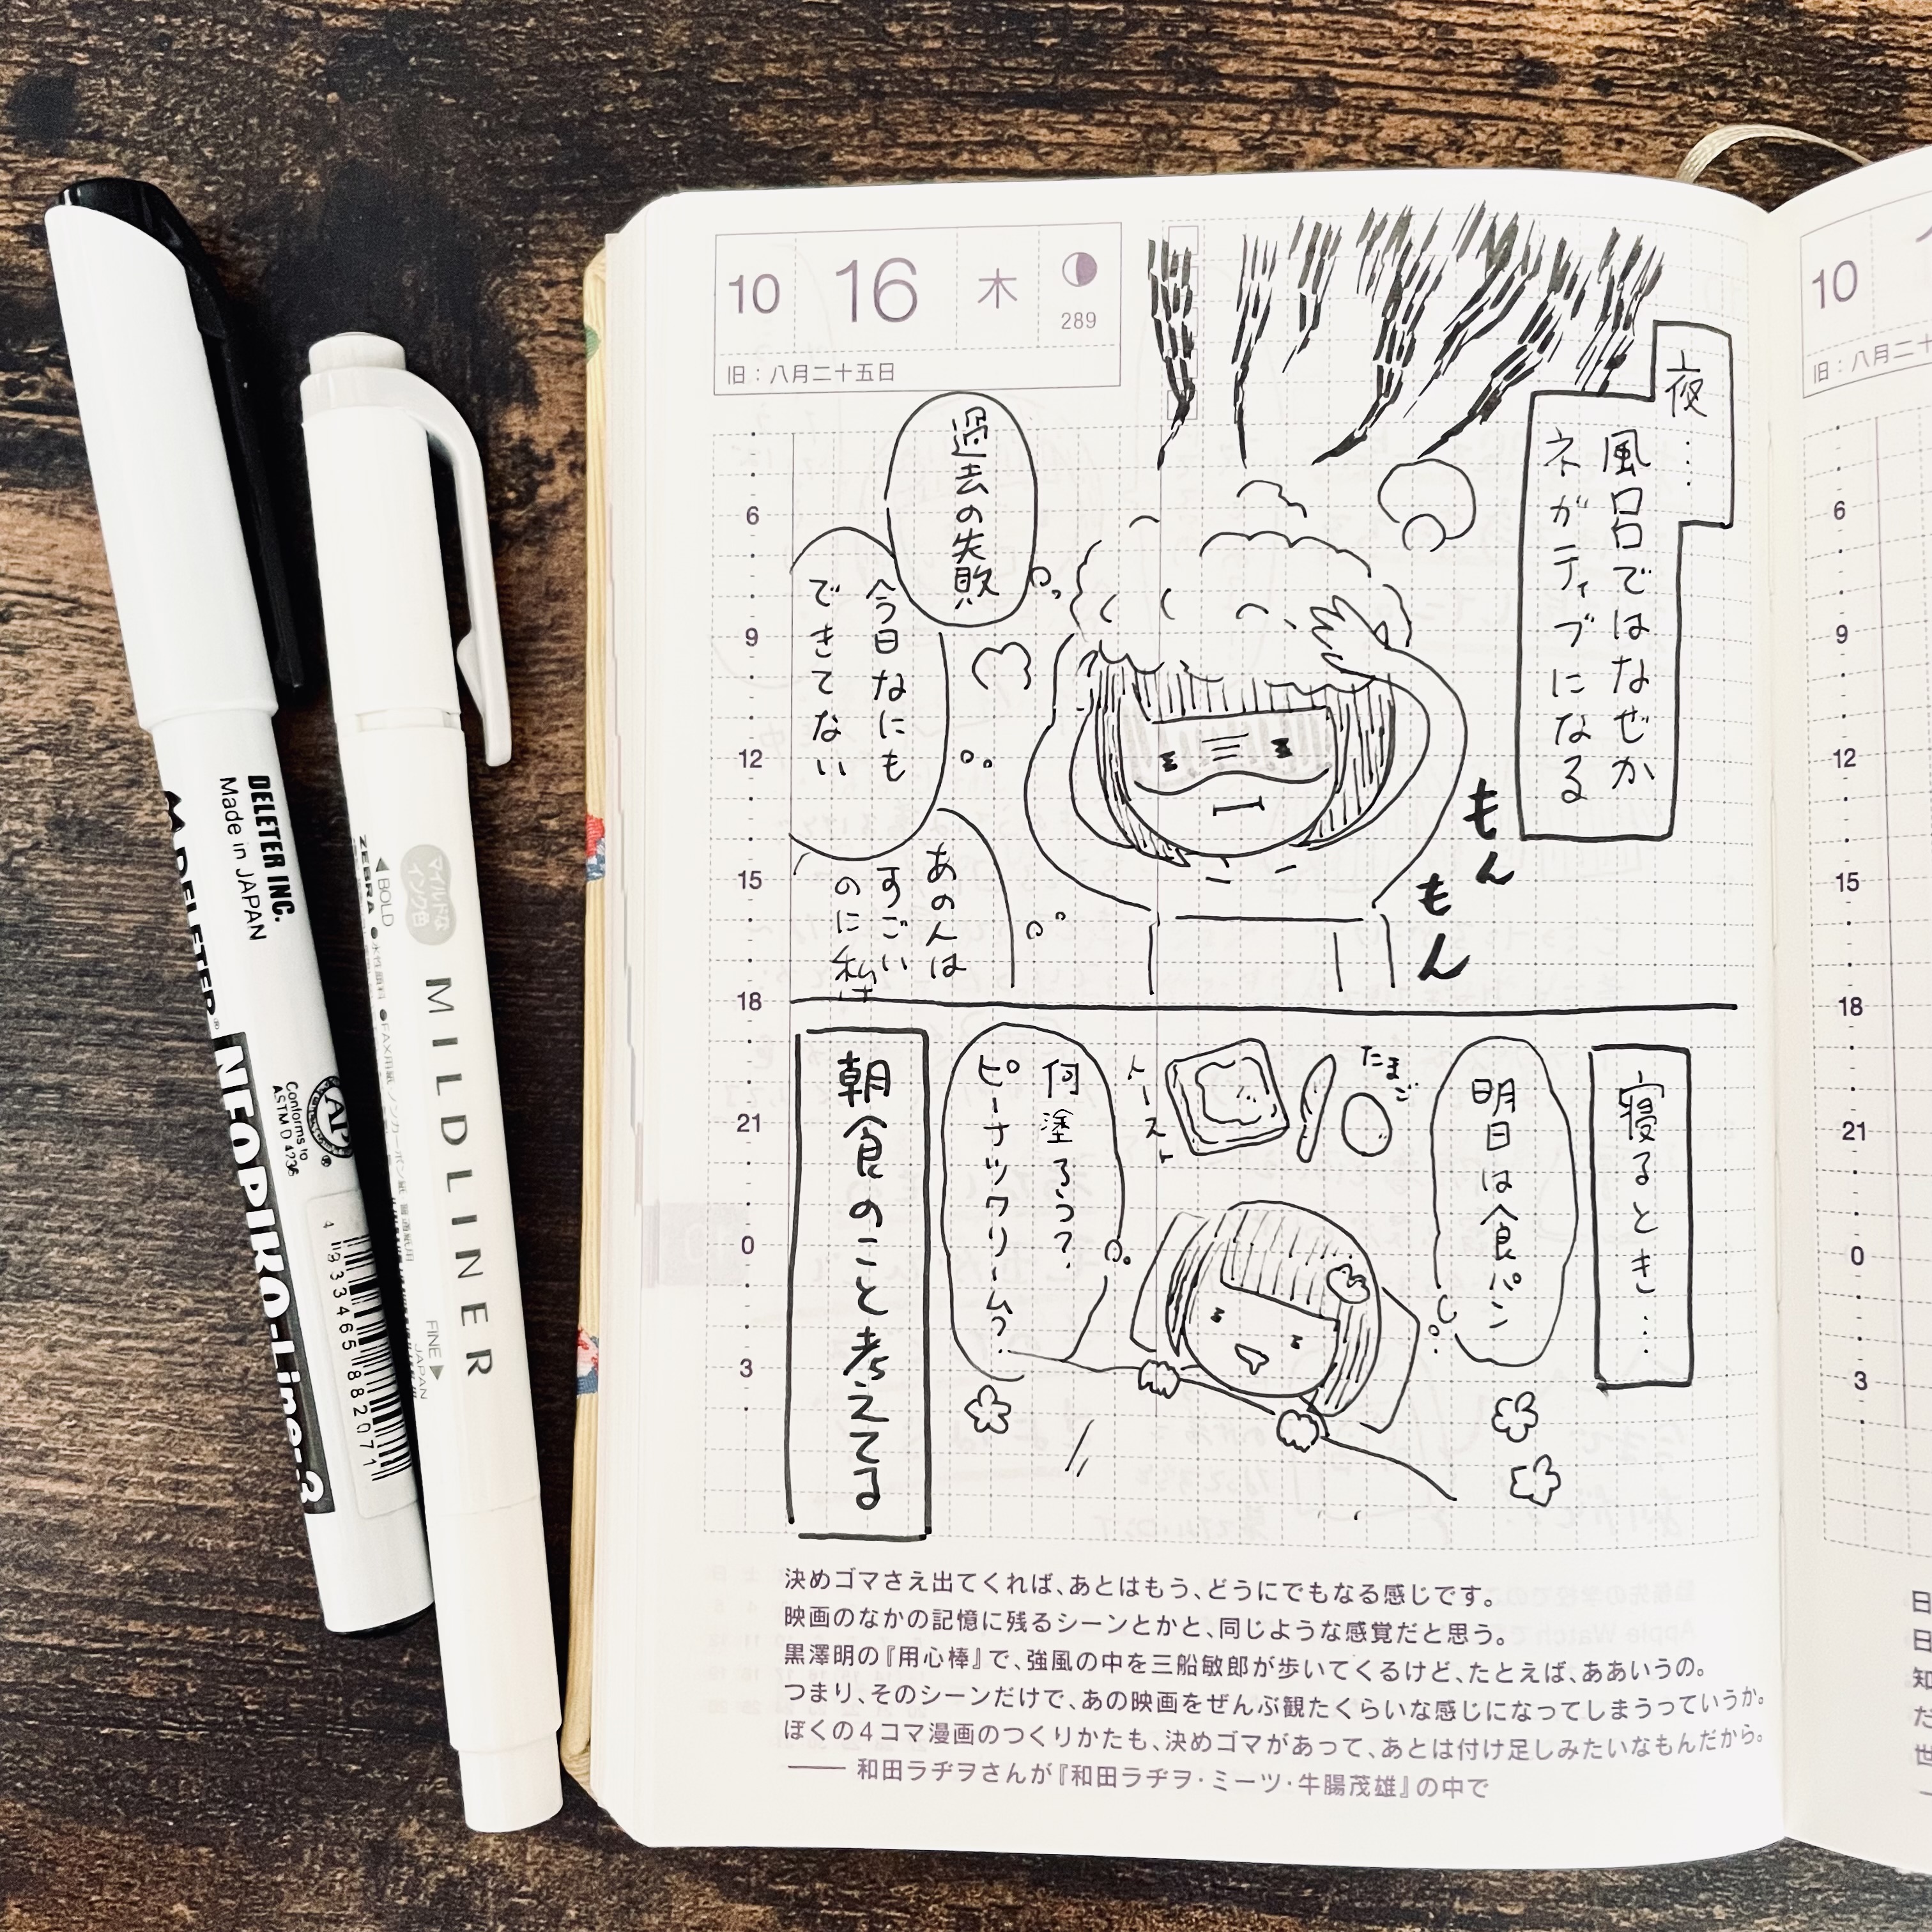 10 16 木
289
旧：八月二十五日
夜…
風呂ではなぜか
ネガティブになる
過去の失敗
今日なにも
できてない
あの人は
すごい
のに私は
もん
もん
寝るとき…
明日は食パン
たまご
トースト
何塗ろう?
ピーナッツクリーム?
朝食のこと考えてる
6
9
12
15
18
21
0
3
決めゴマさえ出てくれば、あとはもう、どうにでもなる感じです。
映画のなかの記憶に残るシーンとかと、同じような感覚だと思う。
黒澤明の『用心棒』で、強風の中を三船敏郎が歩いてくるけど、たとえば、ああいうの。
つまり、そのシーンだけで、あの映画をぜんぶ観たくらいな感じになってしまうっていうか。
ぼくの4コマ漫画のつくりかたも、決めゴマがあって、あとは付け足しみたいなもんだから。
—— 和田ラヂヲさんが『和田ラヂヲ・ミーツ・牛腸茂雄』の中で
10
旧：八月二十
6
9
12
15
18
21
0
3
DELETER INC.
Made in JAPAN
DELETER® NEOPIKO-Line-3
AP
Conforms to
ASTM D 4236
4 933465 882071
マイルドな
インク色
◀BOLD
ZEBRA
MILDLINER
FINE▶
JAPAN